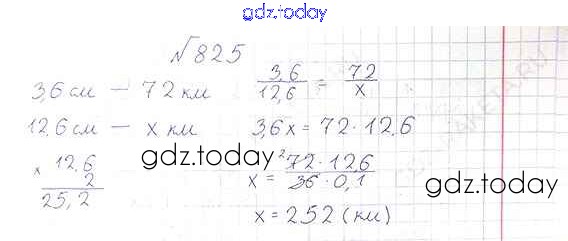 gdz.today
№825
3,6 см – 72 км
12,6 см – x км
× 12,6
2
25,2
3,6/12,6 = 72/x
3,6x = 72·12,6
x = 72·12,6/36·0,1
x = 252 (км)
gdz.today
gdz.today
gdz.today